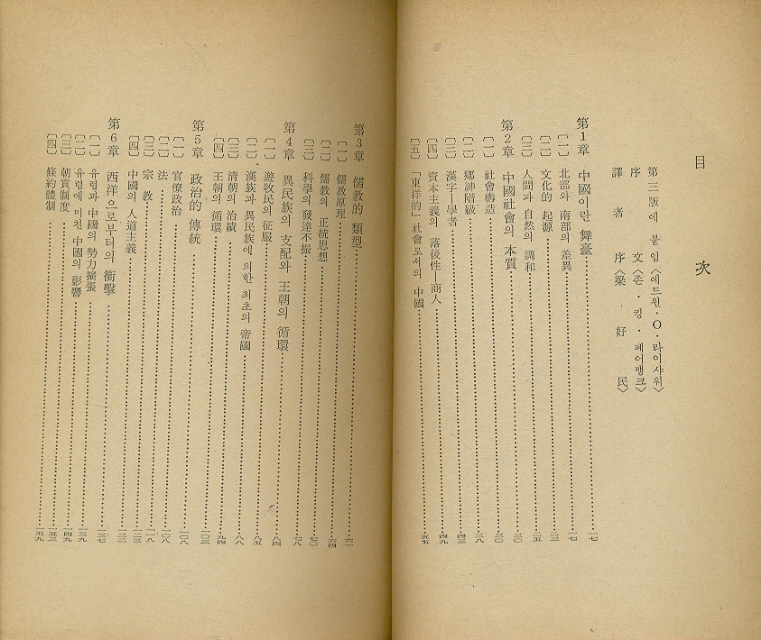 目 次
第三版에 붙임〈에드윈·O·라이샤워〉
序 文〈존·킹·페어뱅크〉
譯 者 序〈梁 好 民〉
第1章 中國이란 舞臺 一七
〔一〕 北部와 南部의 差異 一七
〔二〕 文化的 起源
〔三〕 人間과 自然의 調和 二五
第2章 中國社會의 本質 三〇
〔一〕 社會構造 三〇
〔二〕 鄕紳階級 三八
〔三〕 漢字—學者 四三
〔四〕 資本主義의 落後性—商人 四九
〔五〕 「東洋的」社會로서의 中國 五五
第3章 儒教的 類型 六一
〔一〕 儒教原理
〔二〕 儒教의 正統思想 六四
〔三〕 科學의 發達不振 七〇
第4章 異民族의 支配와 王朝의 循環 七八
〔一〕 遊牧民의 征服 八四
〔二〕 漢族과 異民族에 의한 最초의 帝國 八五
〔三〕 清朝의 治績 八八
〔四〕 王朝의 循環 九四
第5章 政治的 傳統 一〇三
〔一〕 官僚政治 一〇八
〔二〕 法 一〇八
〔三〕 宗 教 一一八
〔四〕 中國의 人道主義 一二三
第6章 西洋으로부터의 衝擊 一三二
〔一〕 유럽과 中國의 勢力擴張 一三七
〔二〕 유럽에 미친 中國의 影響 一三九
〔三〕 朝貢制度 一四九
〔四〕 條約體制 一五三
一五九